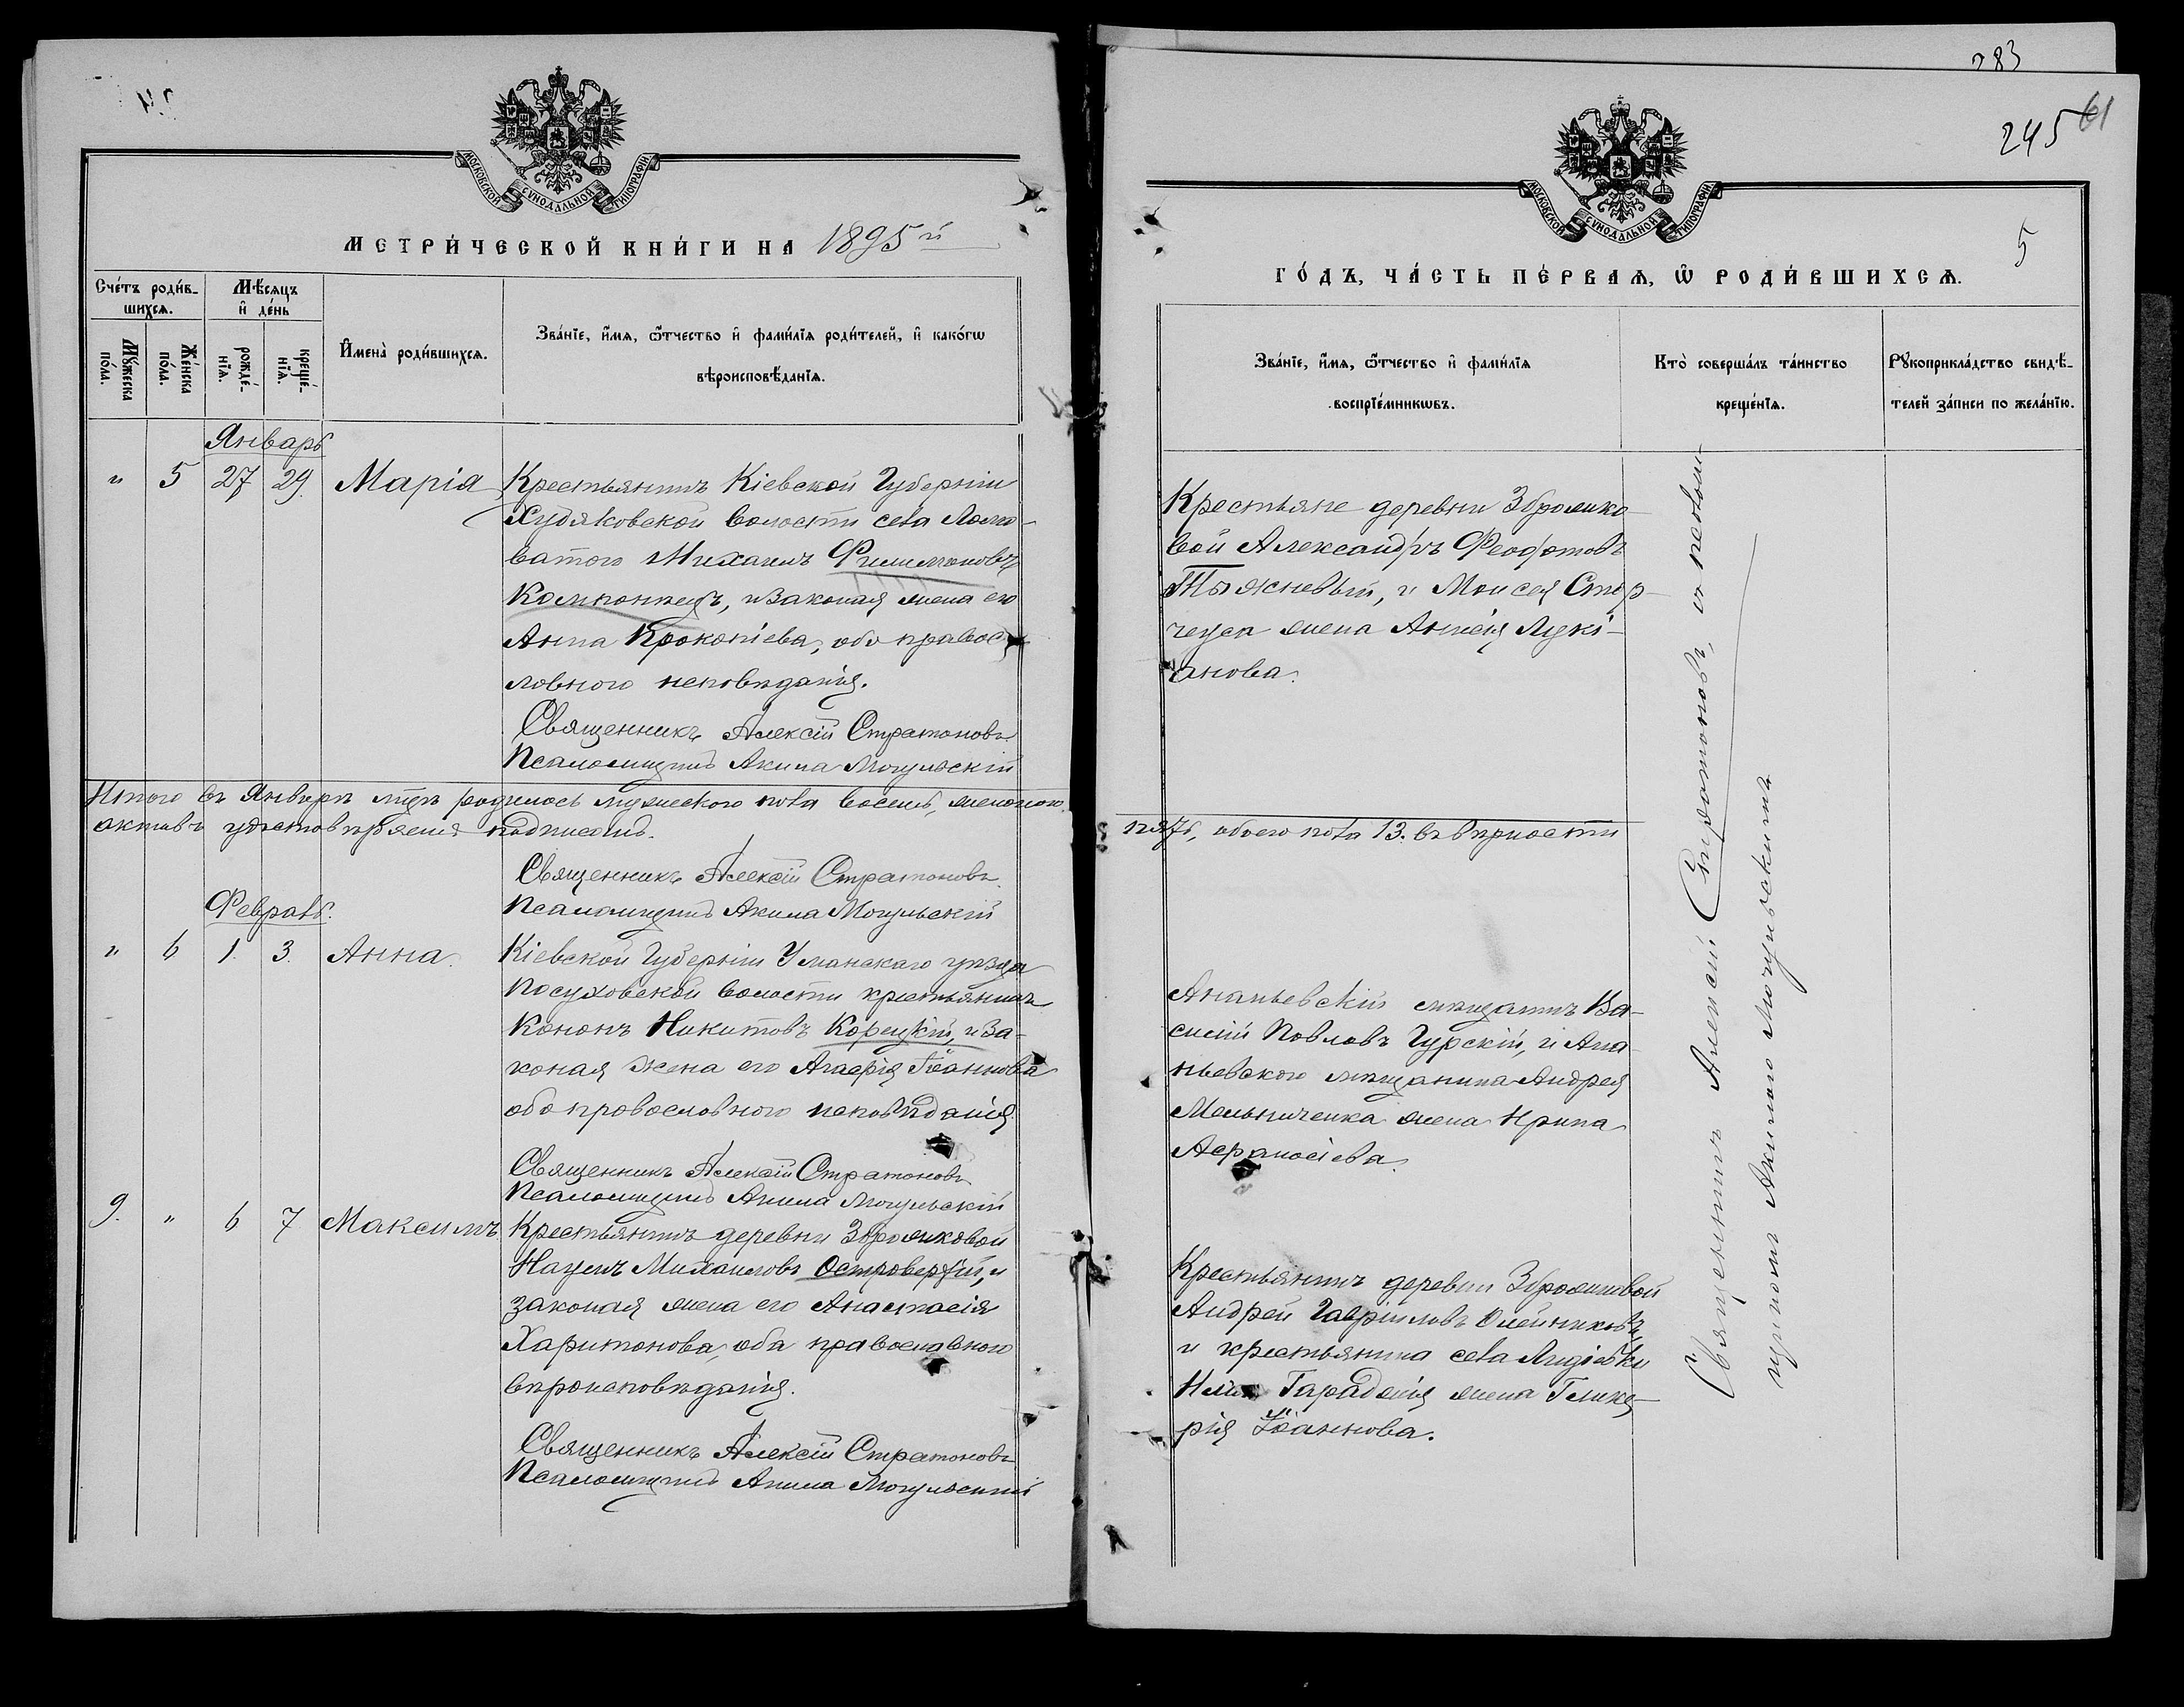 МОСКОВСКОЙ СѴНОДАЛЬНОЙ ТИПОГРАФІИ
МЕТРИ́ЧЕСКОЙ КНИ́ГИ НА 1895 й
Сче́тъ роди́в-
шихсѧ.
Мѣ́сѧцъ
и҆ де́нь
Мꙋ́жеска
по́ла.
Же́нска
по́ла.
рожде́-
нїѧ.
креще́-
нїѧ.
И҆мена̀ роди́вшихсѧ.
Зва́нїе, и҆́мѧ, ѻ҆́тчество и҆ фами́лїѧ роди́телей, и҆ како́гѡ
вѣроисповѣ́данїѧ.
Январь
" 5 27 29. Марія
Крестьянинъ Кіевской Губерніи
Худяковской волости села
ватого Михаилъ Филимоновъ
и законая жена его
Анна Прокопіева, оба правос
ловного исповѣданія.
Священникъ Алексій Стратоновъ
Псаломщикъ Акила Могульскій
Итого въ Январѣ мцѣ родилось мужеского пола восемь, женского
актовъ удостовѣряемъ подписомъ.
Священникъ Алексій Стратоновъ
Псаломщикъ Акила Могульскій
Февраль.
" 6 1. 3. Анна.
Кіевской Губерніи Уманскаго уѣзда
Посуховской волости крестьянинъ
Кононъ Никитовъ Корецкій, и за-
коная жена его Агафія Іоаннова
оба провословного исповѣданія.
Священникъ Алексій Стратоновъ
Псаломщикъ Акила Могульскій
9. " 6 7 Максимъ
Крестьянинъ деревни Зброжковой
Наумъ Михаиловъ Островерхій, и
законая жена его Анастасія
Харитонова, оба православного
вѣроисповѣданія.
Священникъ Алексій Стратоновъ
Псаломщикъ Акила Могульскій
283
245 61
5
МОСКОВСКОЙ СѴНОДАЛЬНОЙ ТИПОГРАФІИ
ГО́ДЪ, ЧА́СТЬ ПЕ́РВАѦ, Ѡ҆ РОДИ́ВШИХСѦ.
Зва́нїе, и҆́мѧ, ѻ҆́тчество и҆ фами́лїѧ
воспрїе́мникѡвъ.
Кто̀ соверша́лъ та́инство
креще́нїѧ.
Рꙋкоприкла́дство свидѣ́-
телей за́писи по жела́нїю.
Крестьяне деревни Зброжко
вой Александръ Феофотовъ
Тыжневый, и Моисея Стор
чеуса жена Анисія Лукі-
анова.
пять, обоего пола 13. въ вѣрности
Ананьевскій мѣщанинъ Ва-
силій Повловъ Гурскій, и Ана
ньевского мѣщанина Андрея
Мельниченка жена Ирина
Афанасіева.
Крестьянинъ деревни Зброжковой
Андрей Гавріиловъ Олейниковъ,
и крестьянина села
жена Глике-
рія Іоаннова.
Священникъ Алексій Стратоновъ, съ псалом-
щикомъ Акилою Могульскимъ